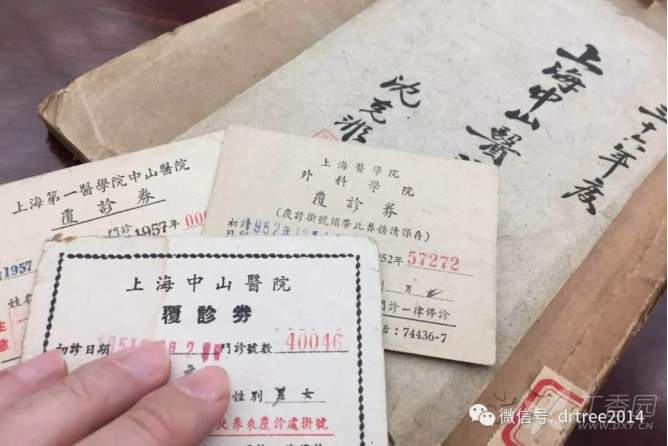 三十六年度
上海中山醫
沈克非
上海第一醫學院中山醫院
覆診券
門診
1957年
1957
上海醫學院
外科學院
覆診券
(覆診掛號須帶此券務請保存)
初診
952年
57272
門診一律停診
74436-7
上海中山醫院
覆診券
初診日期
門診號數
40046
性別 男 女
此券來覆診處掛號
丁香园
WWW.DXY.CN
微信号: drtree2014